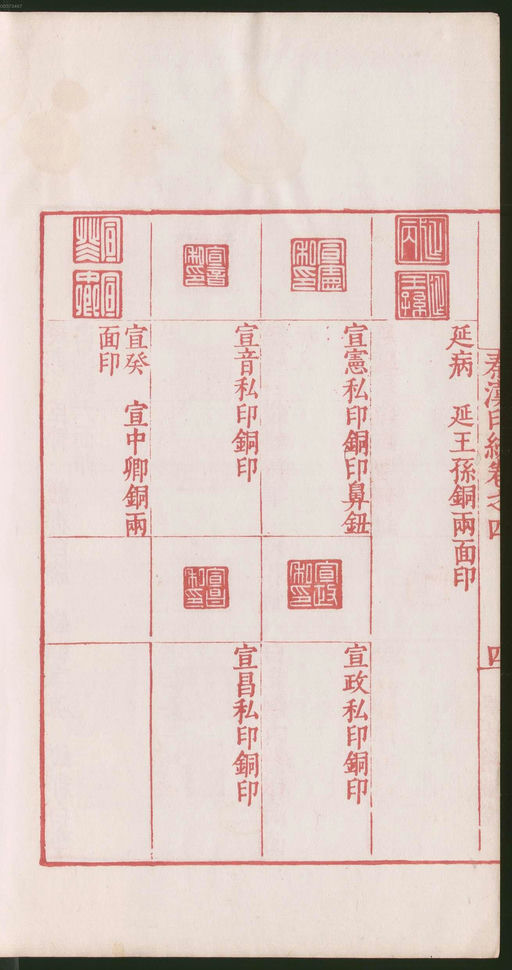 秦漢印統卷之四
四
延病　延王孫銅兩面印
宣憲私印銅印鼻鈕
宣政私印銅印
宣音私印銅印
宣昌私印銅印
宣癸　宣中卿銅兩
面印